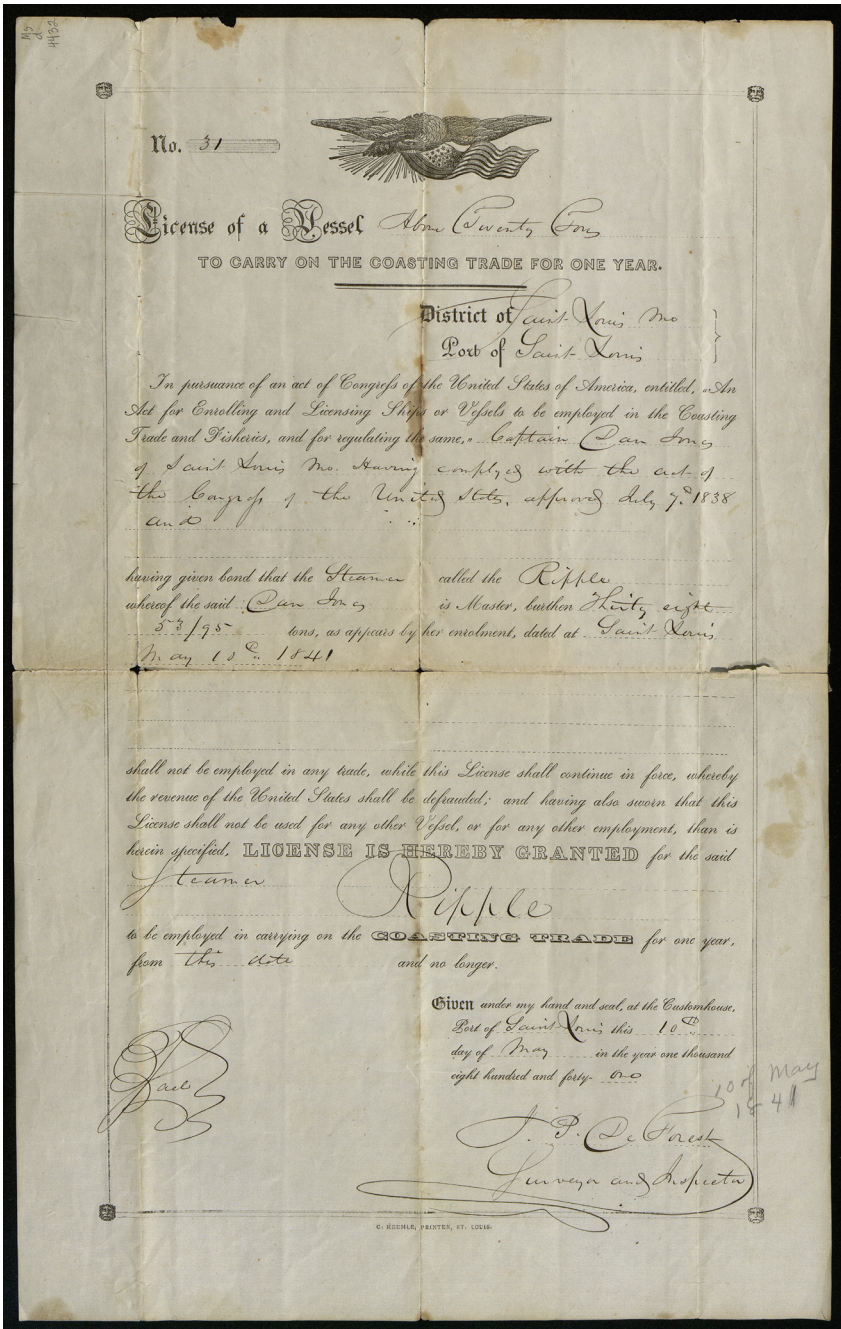 Ms
d
4432
No. 31
License of a Vessel Above Twenty Tons
TO CARRY ON THE COASTING TRADE FOR ONE YEAR.
District of Saint Louis Mo
Port of Saint Louis
In pursuance of an act of Congress of the United States of America, entitled, "An
Act for Enrolling and Licensing Ships or Vessels to be employed in the Coasting
Trade and Fisheries, and for regulating the same," Captain Dan Jones
of Saint Louis Mo. Having complyed with the act of
the Congress of the United States, approved July 7th 1838
and
having given bond that the Steamer called the Ripple
whereof the said Dan Jones is Master, burthen Thirty eight
53/95 tons, as appears by her enrolment, dated at Saint Louis
May 10th 1841
shall not be employed in any trade, while this License shall continue in force, whereby
the revenue of the United States shall be defrauded; and having also sworn that this
License shall not be used for any other Vessel, or for any other employment, than is
herein specified, LICENSE IS HEREBY GRANTED for the said
Steamer Ripple
to be employed in carrying on the COASTING TRADE for one year,
from this date and no longer.
Given under my hand and seal, at the Customhouse,
Port of Saint Louis this 10th
day of May in the year one thousand
eight hundred and forty-one
Seal
10 of May
1841
J. P. De Forest
Surveyor and Inspector
C. KEEMLE, PRINTER, ST. LOUIS.